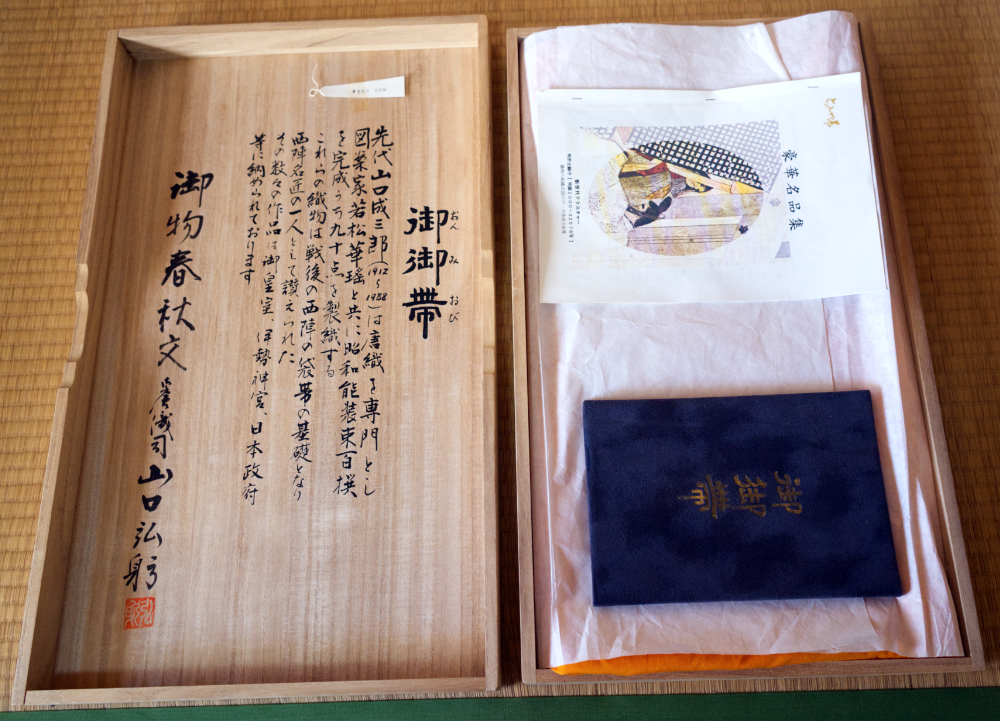 御御帯
おんみおび
先代山口成三郎(1912〜1988)は唐織を専門とし
図案家若松華瑶と共に昭和能装束百撰
を完成うち九十点を製織する
これらの織物は戦後の西陣の袋帯の基礎となり
西陣名匠の一人として讃えられた
その数々の作品は御皇室、伊勢神宮、日本政府
等に納められております
御物春秋文
山口弘躬
豪華名品集
新世代テクスチャー
御御帯